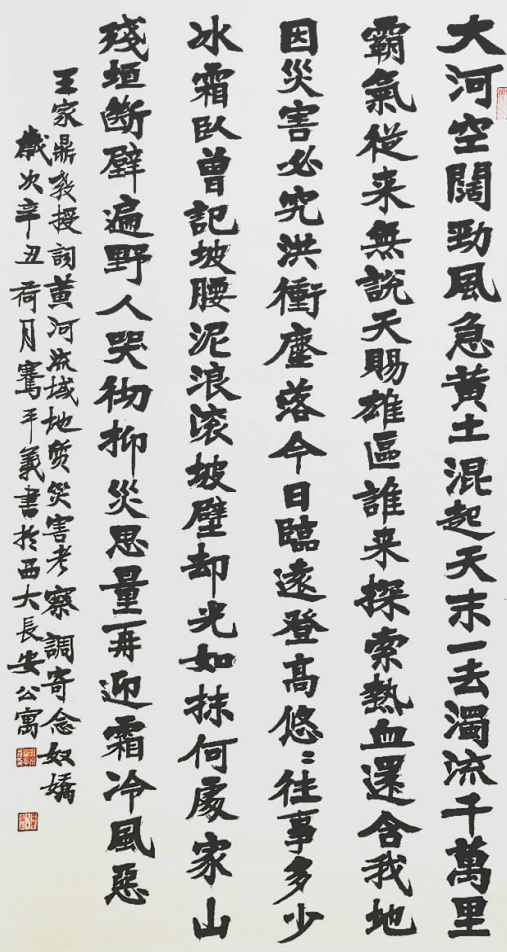 大河空闊勁風急黄土混起天末一去濁流千萬里
霸氣從来無說天賜雄區誰来探索熱血還含我地
因災害必究洪衝塵落今日臨遠登高悠〻往事多少
冰霜臥曽記坡腰泥浪滚坡壁却光如抹何處家山
殘垣斷壁遍野人哭彻抑災思量再迎霜冷風惡
王家鼎教授詞黄河流域地質災害考察調寄念奴嬌
歲次辛丑荷月騫平義書於西大長安公寓